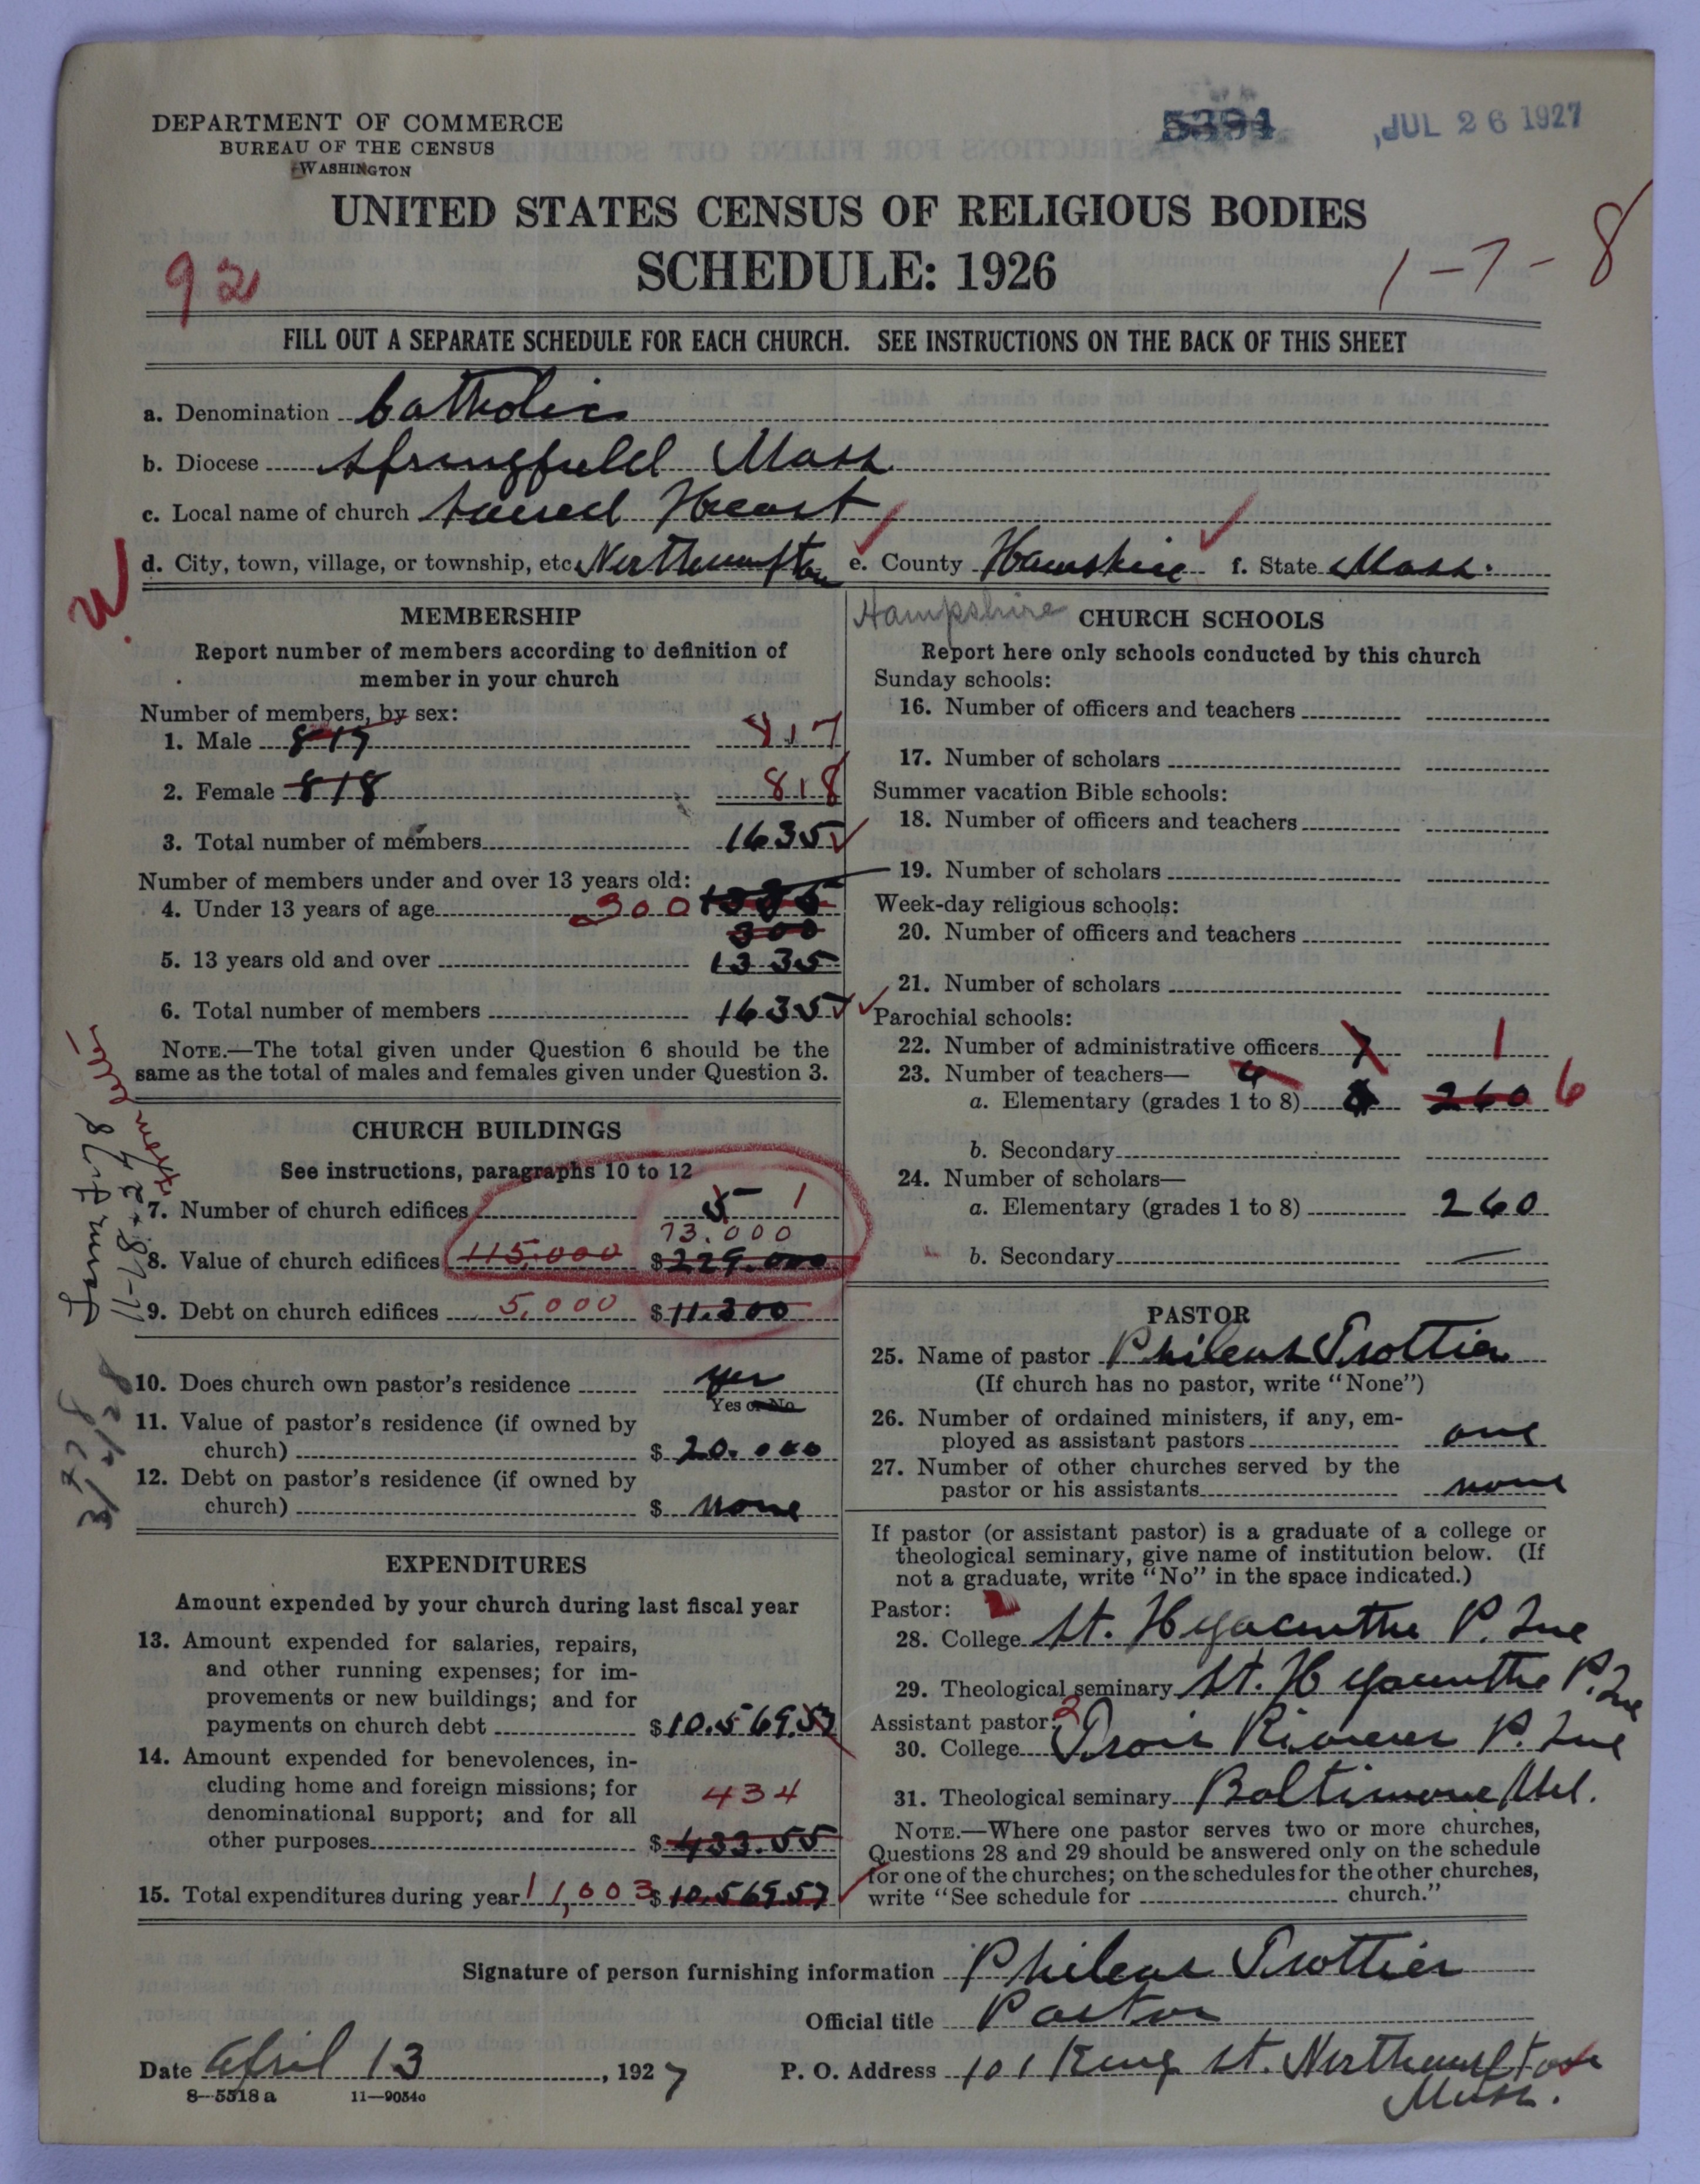 DEPARTMENT OF COMMERCE
BUREAU OF THE CENSUS
WASHINGTON
5394
JUL 26 1927
UNITED STATES CENSUS OF RELIGIOUS BODIES
SCHEDULE: 1926
92
1-7-8
FILL OUT A SEPARATE SCHEDULE FOR EACH CHURCH. SEE INSTRUCTIONS ON THE BACK OF THIS SHEET
a. Denomination Catholic
b. Diocese Springfield Mass
c. Local name of church Sacred Heart
d. City, town, village, or township, etc. Northampton e. County Hampshire f. State Mass.
MEMBERSHIP
Report number of members according to definition of
member in your church
Number of members, by sex:
1. Male 817 817
2. Female 818 818
3. Total number of members 1635
Number of members under and over 13 years old:
4. Under 13 years of age 300 1335
300
5. 13 years old and over 1335
6. Total number of members 1635
NOTE.—The total given under Question 6 should be the
same as the total of males and females given under Question 3.
CHURCH BUILDINGS
See instructions, paragraphs 10 to 12
7. Number of church edifices 5 1
73.000
8. Value of church edifices 115.000 $229.000
9. Debt on church edifices 5,000 $11.200
10. Does church own pastor's residence yes
Yes or No
11. Value of pastor's residence (if owned by
church) $20.000
12. Debt on pastor's residence (if owned by
church) $ none
EXPENDITURES
Amount expended by your church during last fiscal year
13. Amount expended for salaries, repairs,
and other running expenses; for im-
provements or new buildings; and for
payments on church debt $10.569.57
14. Amount expended for benevolences, in-
cluding home and foreign missions; for
denominational support; and for all
other purposes 434
$433.55
15. Total expenditures during year 11,003 $10.569.57
Hampshire
CHURCH SCHOOLS
Report here only schools conducted by this church
Sunday schools:
16. Number of officers and teachers
17. Number of scholars
Summer vacation Bible schools:
18. Number of officers and teachers
19. Number of scholars
Week-day religious schools:
20. Number of officers and teachers
21. Number of scholars
Parochial schools:
22. Number of administrative officers 7 1
23. Number of teachers—
a. Elementary (grades 1 to 8) 260 6
b. Secondary
24. Number of scholars—
a. Elementary (grades 1 to 8) 260
b. Secondary
PASTOR
25. Name of pastor Phileas Trottier
(If church has no pastor, write "None")
26. Number of ordained ministers, if any, em-
ployed as assistant pastors one
27. Number of other churches served by the
pastor or his assistants none
If pastor (or assistant pastor) is a graduate of a college or
theological seminary, give name of institution below. (If
not a graduate, write "No" in the space indicated.)
Pastor:
28. College St. Hyacinthe P. Que
29. Theological seminary St. Hyacinthe P. Que
Assistant pastor: 2
30. College Trois Rivieres P. Que
31. Theological seminary Baltimore Md.
NOTE.—Where one pastor serves two or more churches,
Questions 28 and 29 should be answered only on the schedule
for one of the churches; on the schedules for the other churches,
write "See schedule for church."
Signature of person furnishing information Phileas Trottier
Official title Pastor
Date April 13, 1927 P. O. Address 101 King St. Northampton
Mass.
8-5518 a 11—9054c